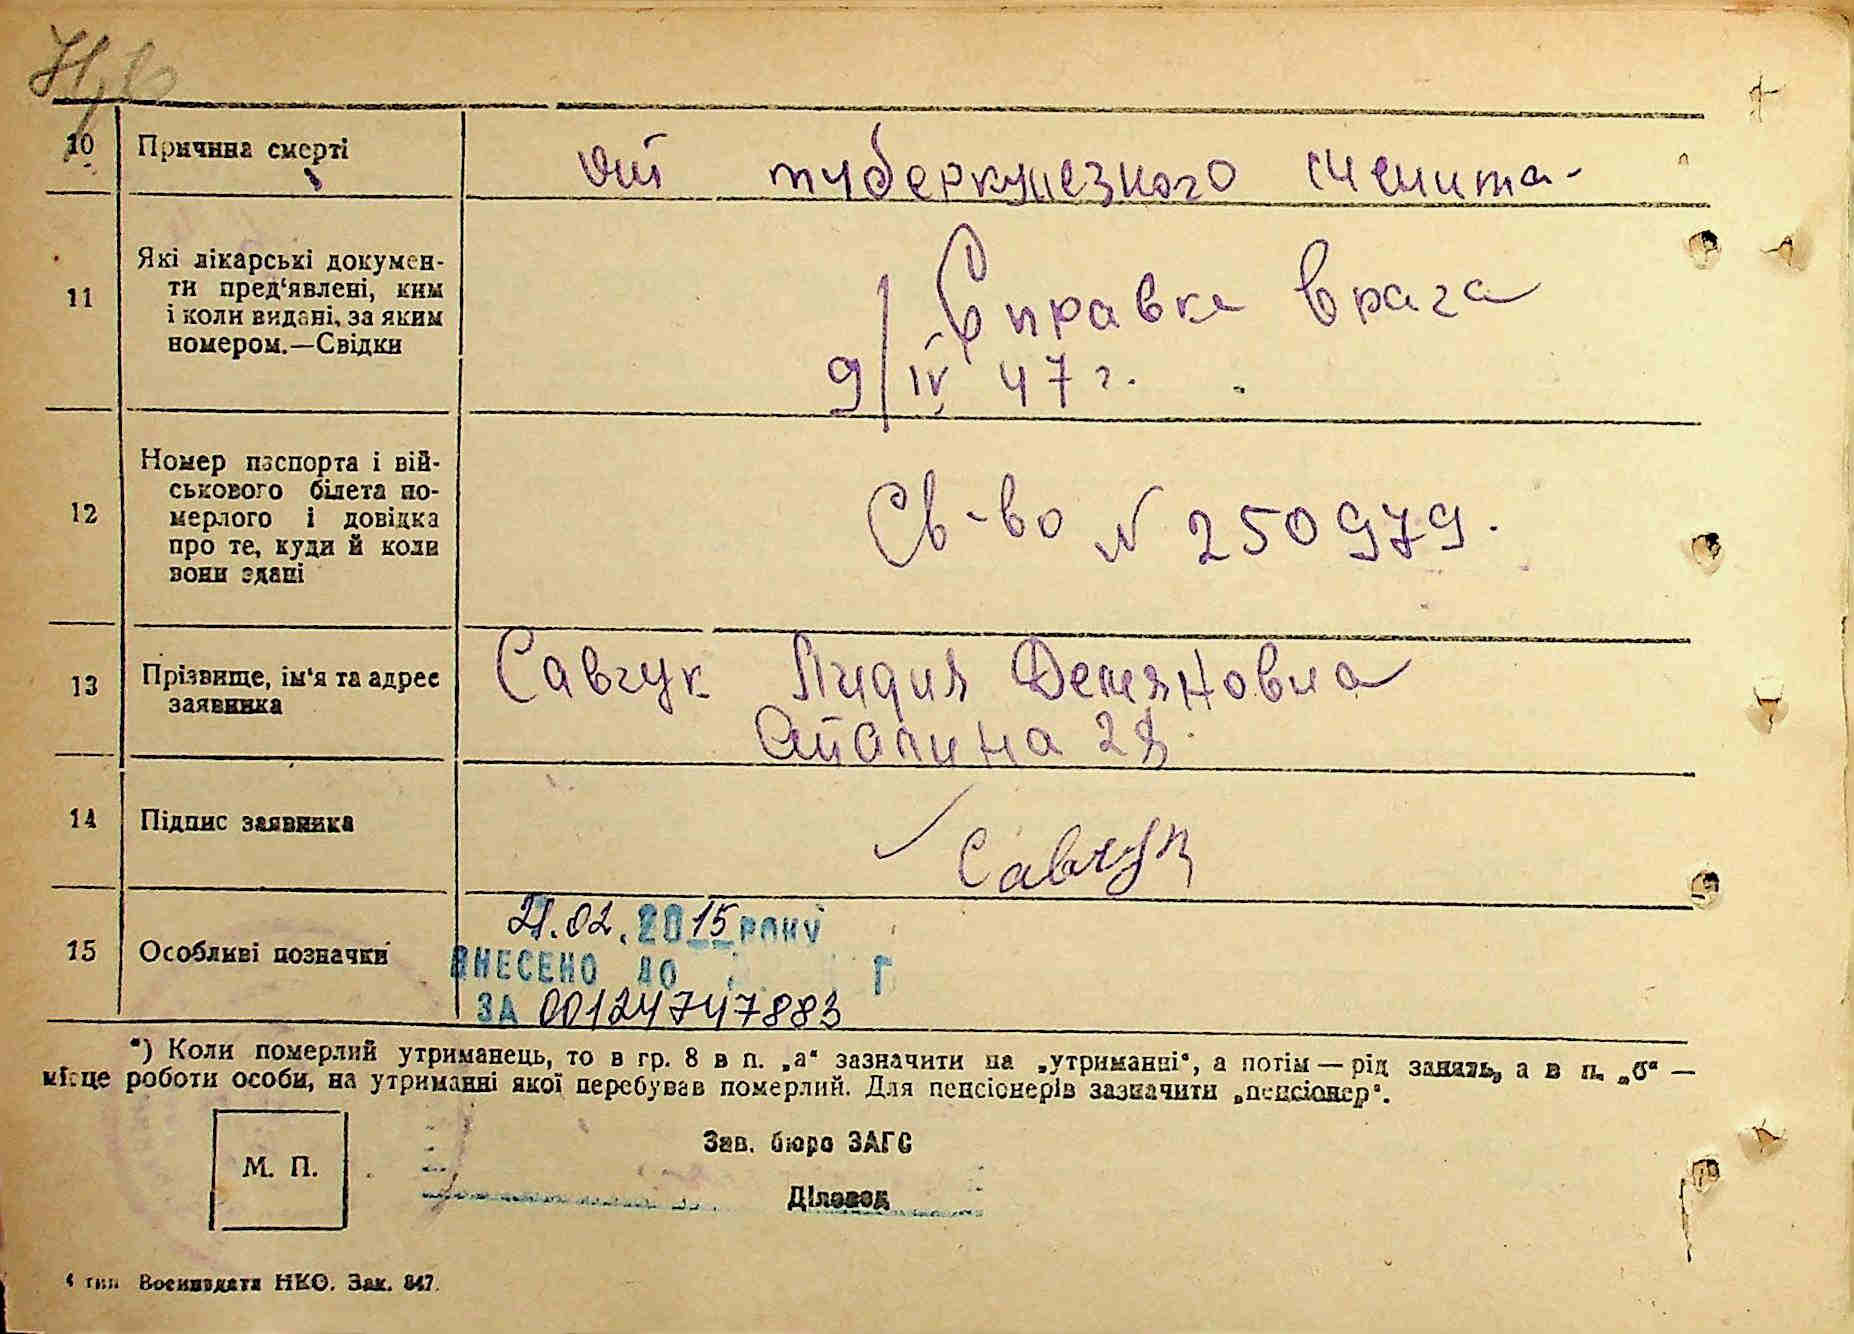 10 Причина смерті
от туберкулезного
11 Які лікарські докумен-
ти пред'явлені, ким
і коли видані, за яким
номером.—Свідки
Справка врача
9/IV 47 г.
12 Номер паспорта і вій-
ськового білета по-
мерлого і довідка
про те, куди й коли
вони здані
Св-во № 250979.
13 Прізвище, ім'я та адрес
заявника
Савчук Лидия Демяновна
Сталина 28.
14 Підпис заявника
Савчук
15 Особливі позначки
21.02.2015 РОКУ
ВНЕСЕНО ДО Г
ЗА 00124747883
*) Коли померлий утриманець, то в гр. 8 в п. „а“ зазначити на „утриманні“, а потім — рід занять, а в п. „б“ —
місце роботи особи, на утриманні якої перебував померлий. Для пенсіонерів зазначити „пенсіонер“.
М. П.
Зав. бюро ЗАГС
Діловод
4 тип Воениздата НКО. Зак. 847.